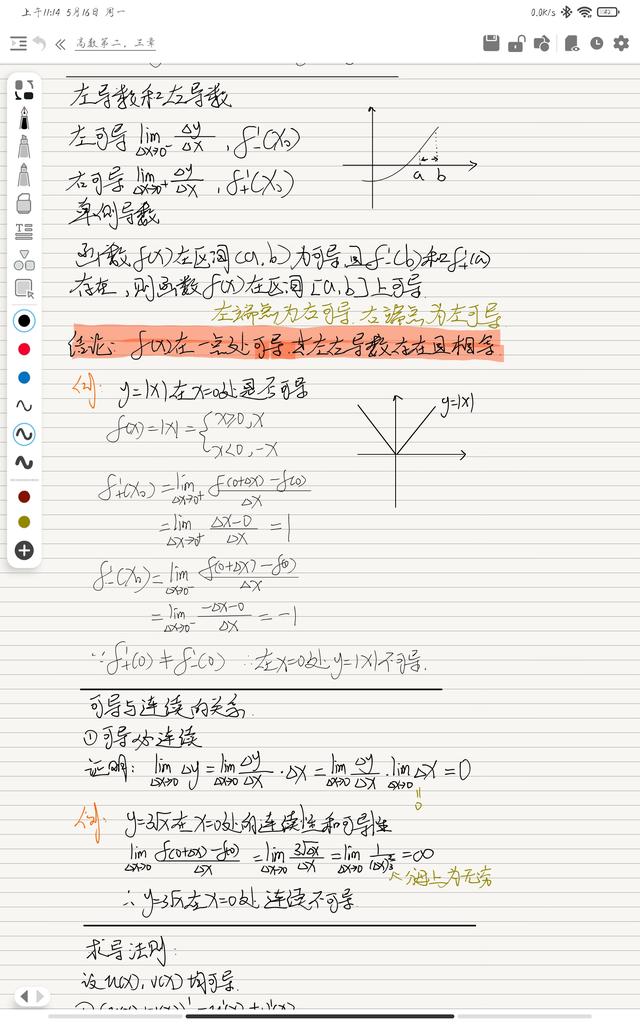 上午11:14 5月16日 周一
0.0K/s 42
高数第二,三章
左导数和左导数
左可导 lim Δx→0⁻ Δy/Δx , f'₋(x₀)
右可导 lim Δx→0⁺ Δy/Δx , f'₊(x₀)
单侧导数
a b
函数f(x)在区间(a,b)为可导且f'₋(b)和f'₊(a)
存在,则函数f(x)在区间[a,b]上可导.
左端点为右可导.右端点为左可导
结论: f(x)在一点处可导.其左右导数存在且相等
例: y=|x|在x=0处是否可导
f(x)=|x|={x≥0,x
x<0,-x
y=|x|
f'₊(x₀)=lim Δx→0⁺ f(0+Δx)-f(0)/Δx
=lim Δx→0⁺ Δx-0/Δx =1
f'₋(x₀)=lim Δx→0⁻ f(0+Δx)-f(0)/Δx
=lim Δx→0⁻ -Δx-0/Δx =-1
∵f'₊(0)≠f'₋(0) ∴在x=0处y=|x|不可导.
可导与连续的关系.
①可导必连续
证明: lim Δx→0 Δy=lim Δx→0 Δy/Δx ·Δx=lim Δx→0 Δy/Δx ·lim Δx→0 Δx=0
=0
例: y=3√x在x=0处的连续性和可导性
lim Δx→0 f(0+Δx)-f(0)/Δx =lim Δx→0 3√Δx/Δx =lim Δx→0 1/(Δx)^⅔ =∞
分母上为无穷
∴y=3√x在x=0处连续不可导
求导法则:
设u(x),v(x)均可导.